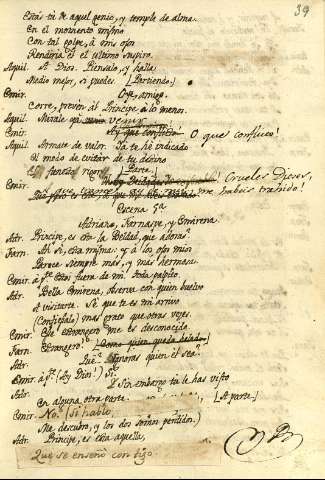 39
Estás tú de aquel genio, y temple de alma.
En el momento mismo
Con tal golpe, á mis ojos
Rendiría es el ultimo suspiro.
Aquil. A Dios. Piensalo, y halla
Medio mejor, si puedes. (Partiendo.)
Emir. Oye, amigo.
Corre, prevén al Principe á lo menor.
Aquil. venir
Emir. Ay que conflicto O que conflicto!
Aquil. Armate de valor. Ya te hé indicado
El medio de evitár de tu destino
El funesto rigor. (Parte.)
Emir. ! Crueles Dioses,
á que trance me habeis trahido!
Escena 7ª
Adriano, Farnaspe, y Emirena.
Adr. Principe, es esta la Beldad, que adoras?
Farn. Ah Sí, esta misma: y á los ojos mios
Parece siempre más, y más hermosa.
Emir. á pte. Estoi fuera de mí. Toda palpito.
Adr. Bella Emirena, observa con quien buelvo
A visitarte. Sé que te es mi arrivo
(Confiésalo) mas grato que otras veces.
Emir. Ese Estrangero me es desconocido.
Farn. Estrangero! (Como quien queda helado.)
Adr. Qué? Ignoras quien él sea.
Emir. á pte. (Ay Dios!) Sí.
Adr. Sin embargo tu le has visto
En alguna otra parte. (A parte.)
Emir. No. (Si hablo,
Me descubro, y los dos somos perdidos.)
Adr. Principe, es esta aquella,
Que se enseñó contigo